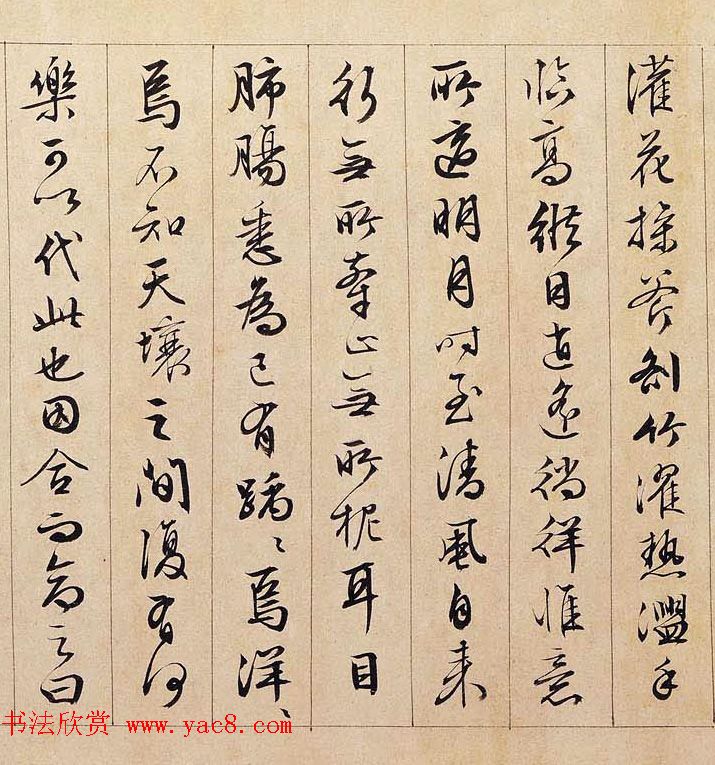 灌花操斧剖竹濯熱盥手
臨高縱目逍遙徜徉惟意
所適明月時至清風自来
行無所牽止無所柅耳目
肺腸悉為己有踽〻焉洋〻
焉不知天壤之間復有何
樂可以代此也因合而命之曰
书法欣赏 www.yac8.com